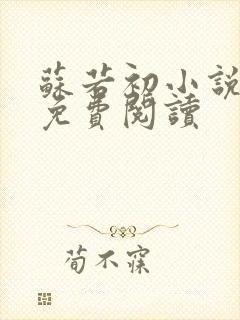 蘇若初小說
免費閱讀
荀不寐